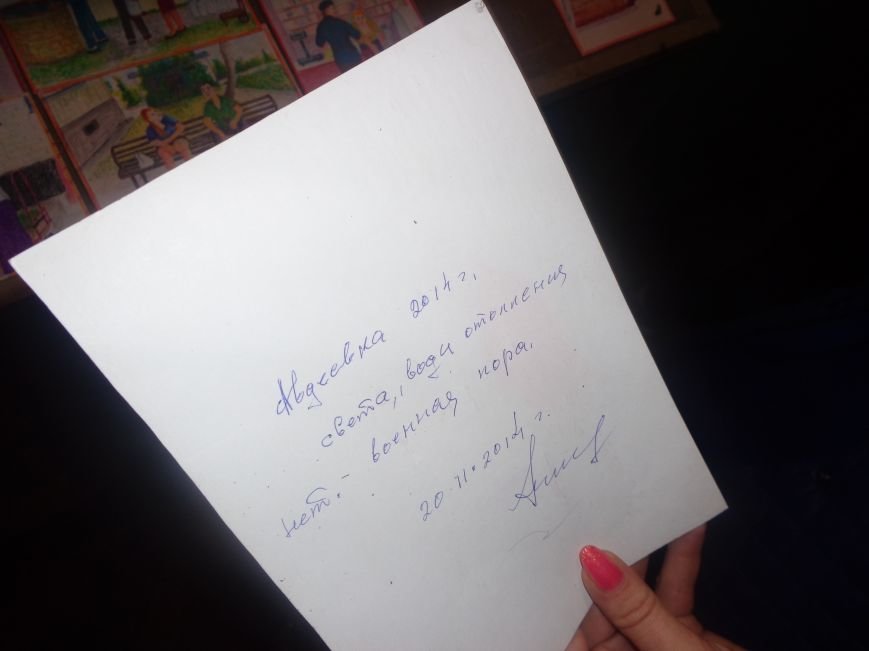 Авдеевка 2014 г.
света, воды отопления
нет. - военная пора.
20.11.2014 г.